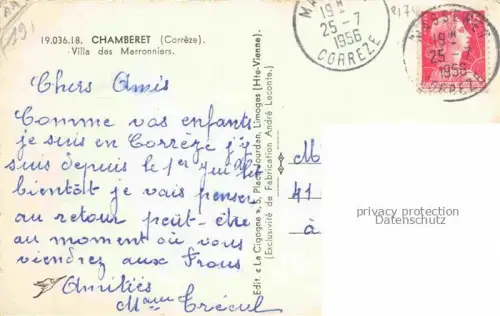 19.036.18. CHAMBERET (Corrèze).
Villa des Marronniers.
Chers Amis
Comme vos enfants
je suis en Corrèze j'y
suis depuis le 1er
bientôt je vais penser
au retour peut-être
au moment où vous
viendrez aux Frous
Amitiés
Mme Trécul
Edit. « La Cigogne », 5, Place Jourdan, Limoges (Hte-Vienne).
(Exclusivité de Fabrication André Leconte.)
19 H
25-7
1956
CORREZE
25-7
1956
M
41
à
privacy protection
Datenschutz